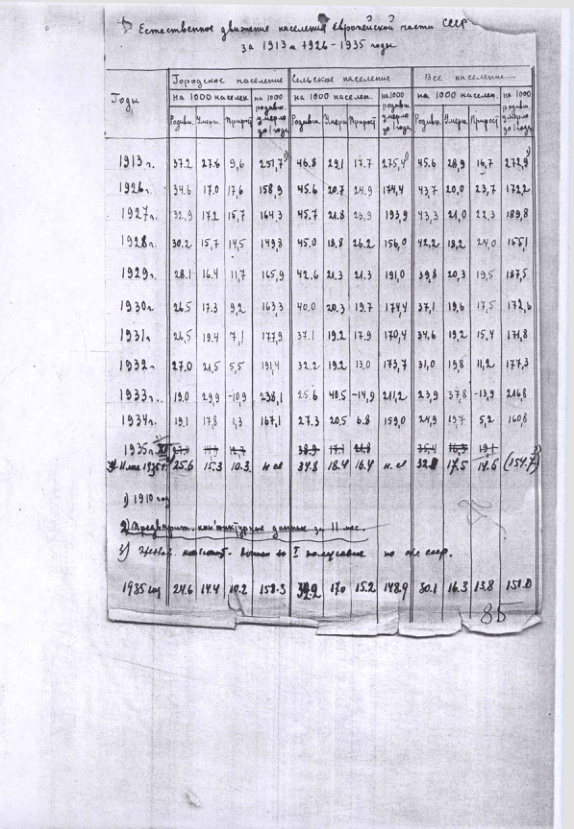 Естественное движение населения Европейской части СССР
за 1913 и 1926-1935 годы
Годы Городское население Сельское население Все население
на 1000 населен. на 1000 родивш. умерло до 1 года на 1000 населен. на 1000 родивш. умерло до 1 года на 1000 населен. на 1000 родивш. умерло до 1 года
Родивш. Умерш. Прирост Родивш. Умерш. Прирост Родивш. Умерш. Прирост
1913 г. 37.2 27.6 9,6 251,7 46.8 29,1 17.7 275,4 45.6 28,9 16,7 272,9
1926 г. 34.6 17.0 17,6 158,9 45.6 20.7 24.9 174,4 43,7 20.0 23,7 172,2
1927 г. 32,9 17.2 15,7 164,3 45.7 21.8 23,9 193,9 43,3 21,0 22,3 189,8
1928 г. 30.2 15,7 14,5 149,8 45.0 18,8 26.2 156,0 42,2 18,2 24,0 155,1
1929 г. 28.1 16.4 11,7 165,9 42.6 21,3 21.3 191,0 39,8 20,3 19,5 187,5
1930 г. 26,5 17.3 9,2 163,3 40.0 20.3 19.7 174,4 37,1 19,6 17,5 172,6
1931 г. 26,5 19.4 7,1 177,9 37.1 19.2 17.9 170,4 34.6 19,2 15,4 171,8
1932 г. 27.0 21,5 5,5 191,4 32.2 19.2 13.0 173,7 31,0 19,8 11,2 177,3
1933 г. 19.0 29,9 -10,9 238,1 25.6 40,5 -14,9 211,2 23,9 37,8 -13,9 216,8
1934 г. 19,1 17,8 1,3 167,1 27.3 20,5 6.8 159,0 24,9 19,7 5,2 160,8
1935 г.
25.6 15.3 10.3 н св 34.8 18.4 16.4 н. св 17.5 14.6 (154.7)
1) 1910 год
2) Предварит. конъюнктурные данные за 11 мес.
I полугодие по
1935 год 24.6 14.4 10.2 151.3 32.2 17.0 15.2 148.9 30.1 16.3 13.8 151.0